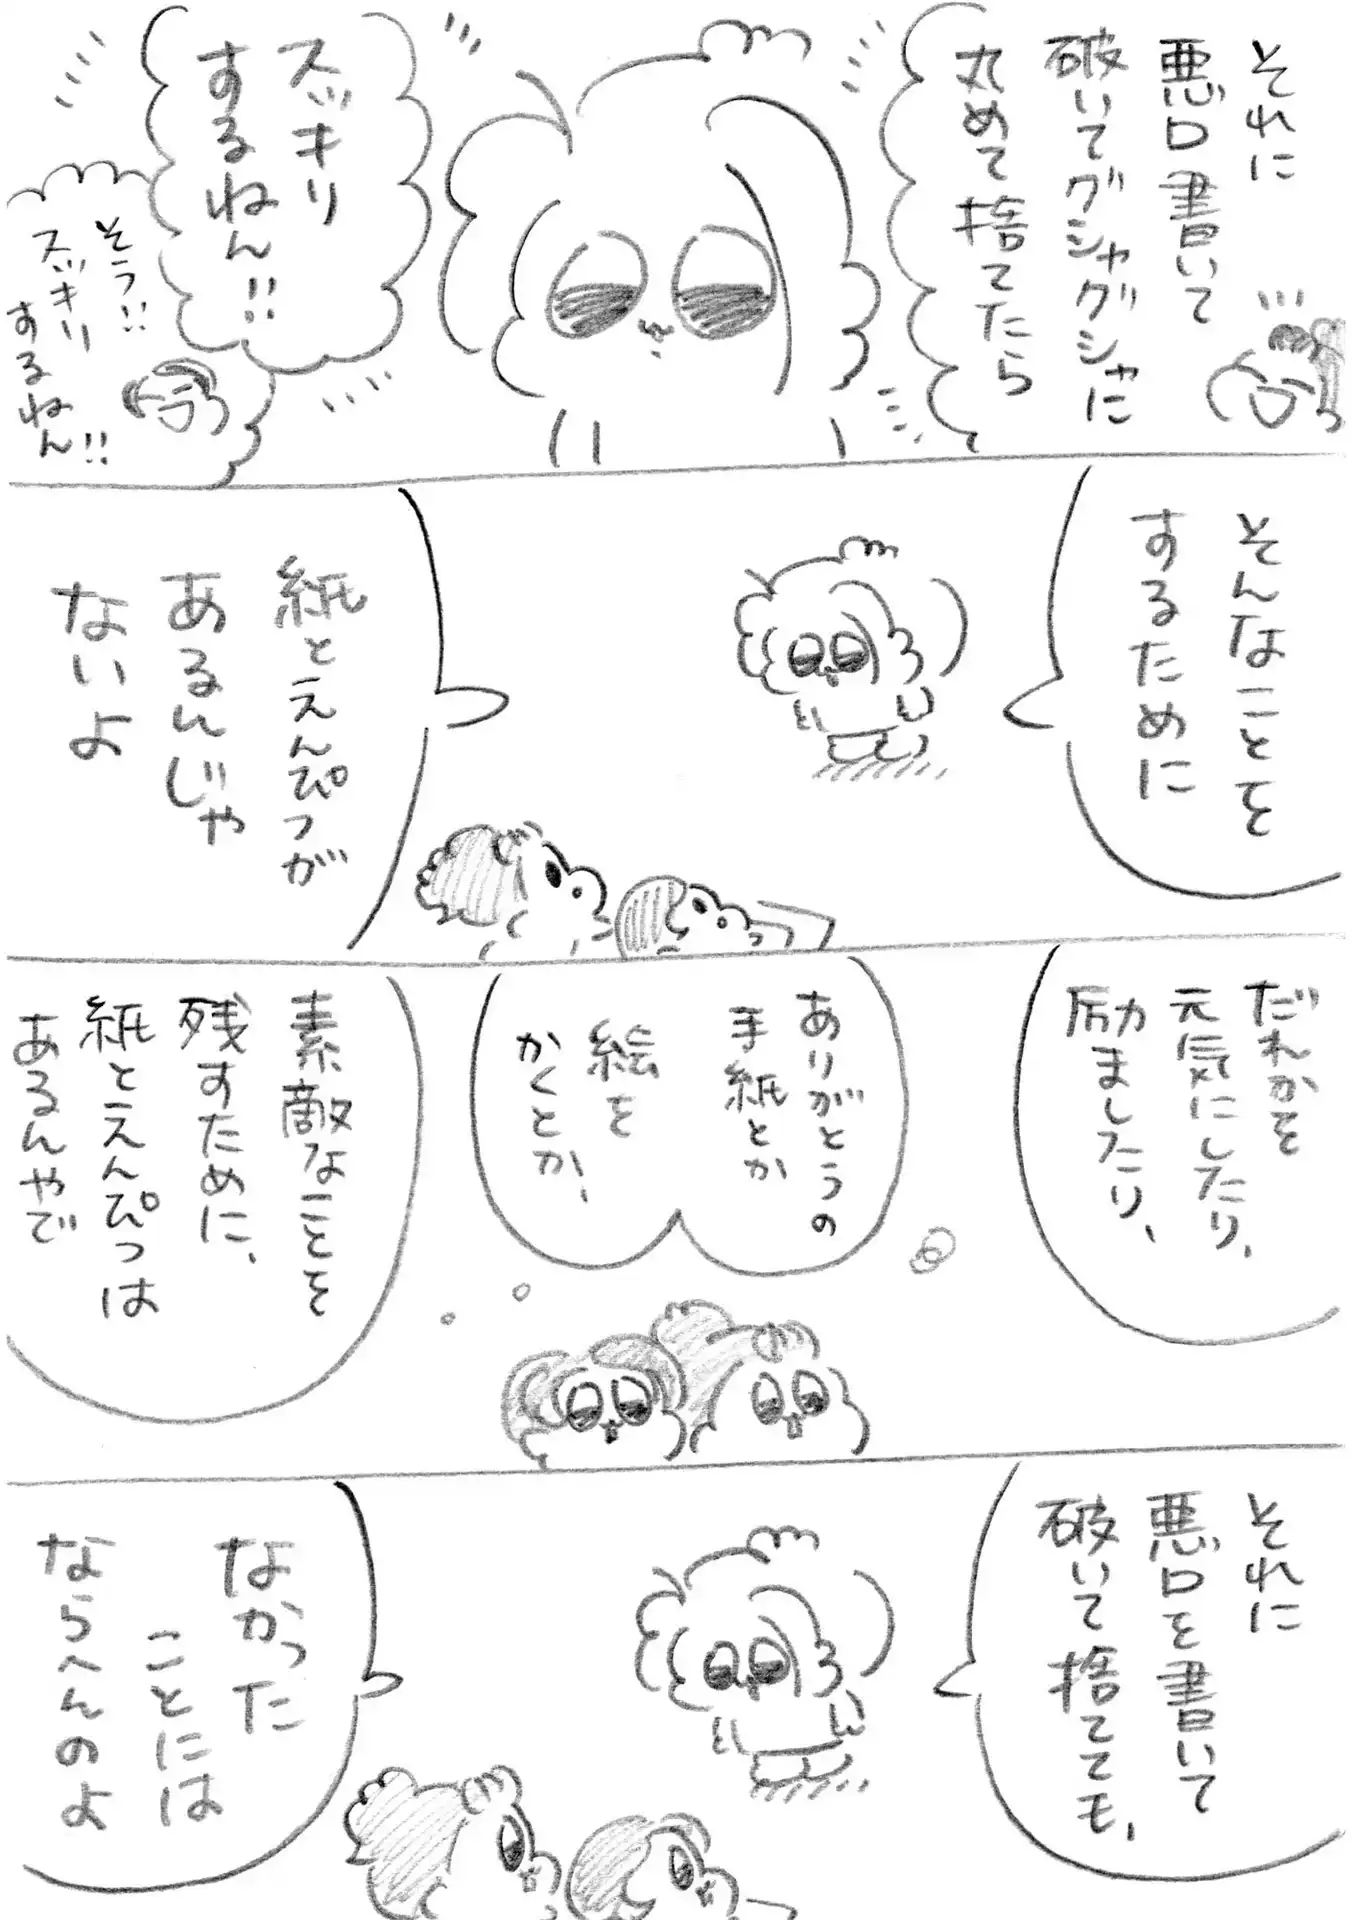 それに
悪口書いて
破いてグシャグシャに
丸めて捨てたら
スッキリ
するねん!!
そう!!
スッキリ
するねん!!
そんなことを
するために
紙とえんぴつが
あるんじゃ
ないよ
だれかを
元気にしたり、
励ましたり、
ありがとうの
手紙とか
絵を
かくとか、
素敵なことを
残すために、
紙とえんぴつは
あるんやで
それに
悪口を書いて
破いて捨てても、
なかった
ことには
ならへんのよ